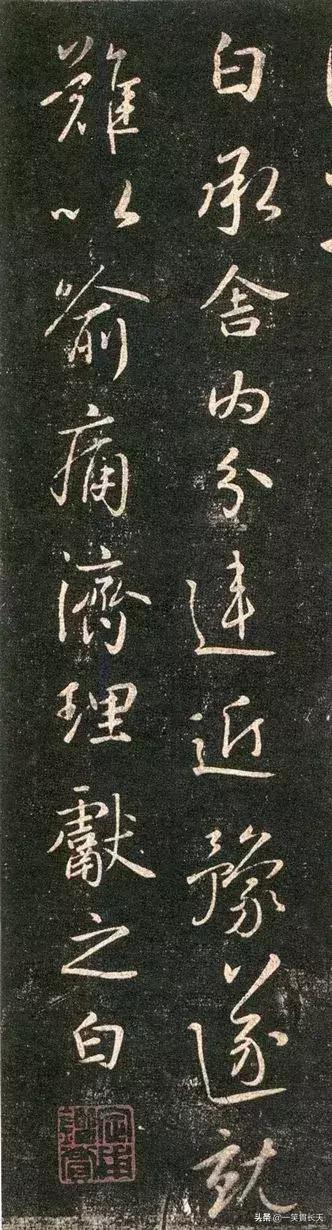 白承舍内分違近豫遂就
難以喻痛濟理獻之白
头条 @一笑贯长天